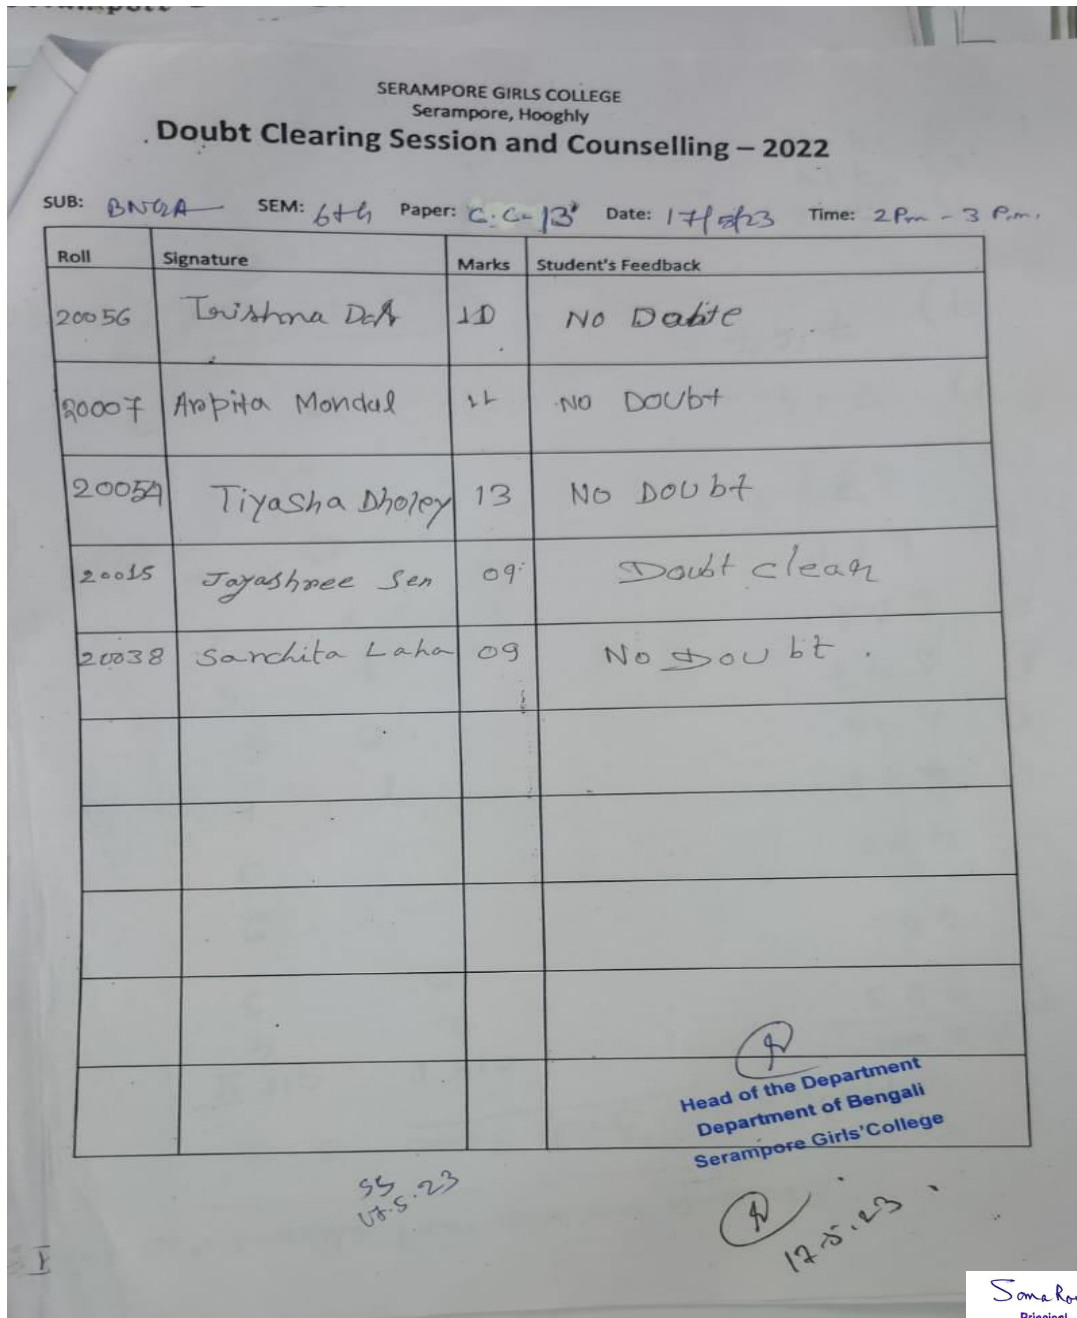 SERAMPORE GIRLS COLLEGE
Serampore, Hooghly
Doubt Clearing Session and Counselling – 2022
SUB: BNGA SEM: 6th Paper: C.C-13 Date: 17/5/23 Time: 2Pm - 3 P.m.
Roll Signature Marks Student's Feedback
20056 Trishna Das 10 No Dabte
20007 Arpita Mondal 11 No Doubt
20054 Tiyasha Dholey 13 No Doubt
20015 Jayashree Sen 09 Doubt clear
20038 Sanchita Laha 09 No Doubt.
Head of the Department
Department of Bengali
Serampore Girls'College
SS
17.5.23
17.5.23
Soma
Principal